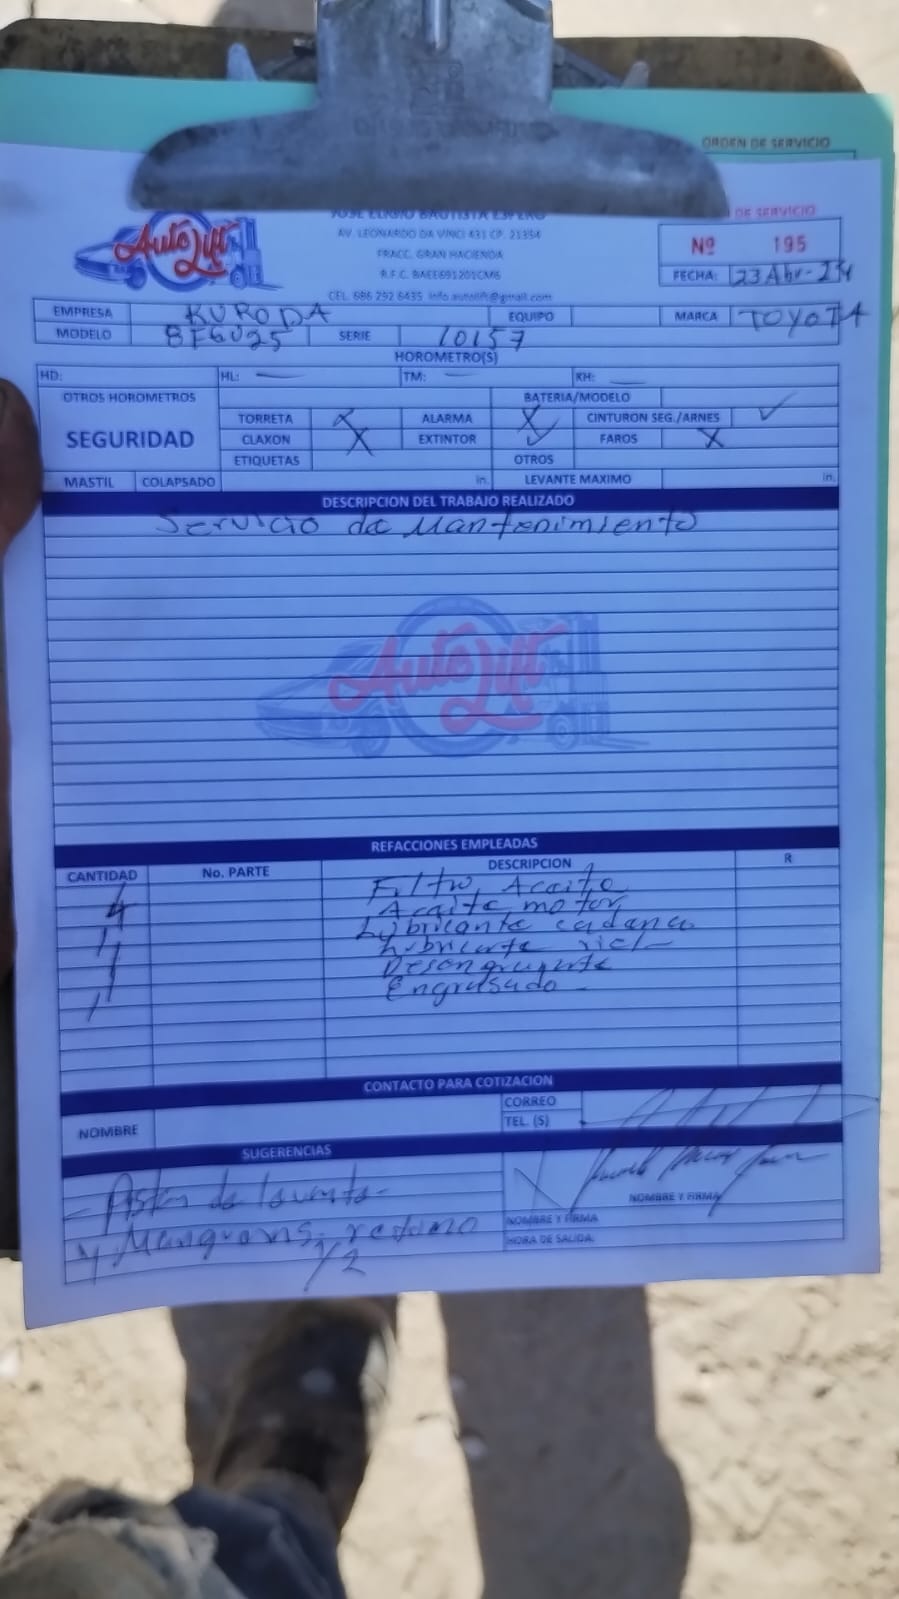 ORDEN DE SERVICIO
DE SERVICIO
JOSE ELIGIO BAUTISTA ESPERO
AV. LEONARDO DA VINCI 431 CP. 21354
FRACC. GRAN HACIENDA
R.F.C. BAEE691201CM6
CEL. 686 292 6435 info.autolift@gmail.com
Auto Lift
Nº 195
FECHA: 23 Abr-24
EMPRESA KURODA EQUIPO MARCA TOYOTA
MODELO 8FGU25 SERIE 10157
HOROMETRO(S)
HD: HL: — TM: — KH: —
OTROS HOROMETROS BATERIA/MODELO
SEGURIDAD
TORRETA X ALARMA X CINTURON SEG./ARNES ✓
CLAXON X EXTINTOR ✓ FAROS X
ETIQUETAS OTROS
MASTIL COLAPSADO in. LEVANTE MAXIMO in.
DESCRIPCION DEL TRABAJO REALIZADO
Servicio de Mantenimiento
Auto Lift
REFACCIONES EMPLEADAS
CANTIDAD No. PARTE DESCRIPCION R
1 Filtro Aceite
4 Aceite motor
1 Lubricante cadena
1 Lubricante riel
1 Desengrasante
1 Engrasado
CONTACTO PARA COTIZACION
NOMBRE CORREO
TEL. (S)
SUGERENCIAS
de levante
y Mangueras retorno
1/2
NOMBRE Y FIRMA
NOMBRE Y FIRMA
HORA DE SALIDA: